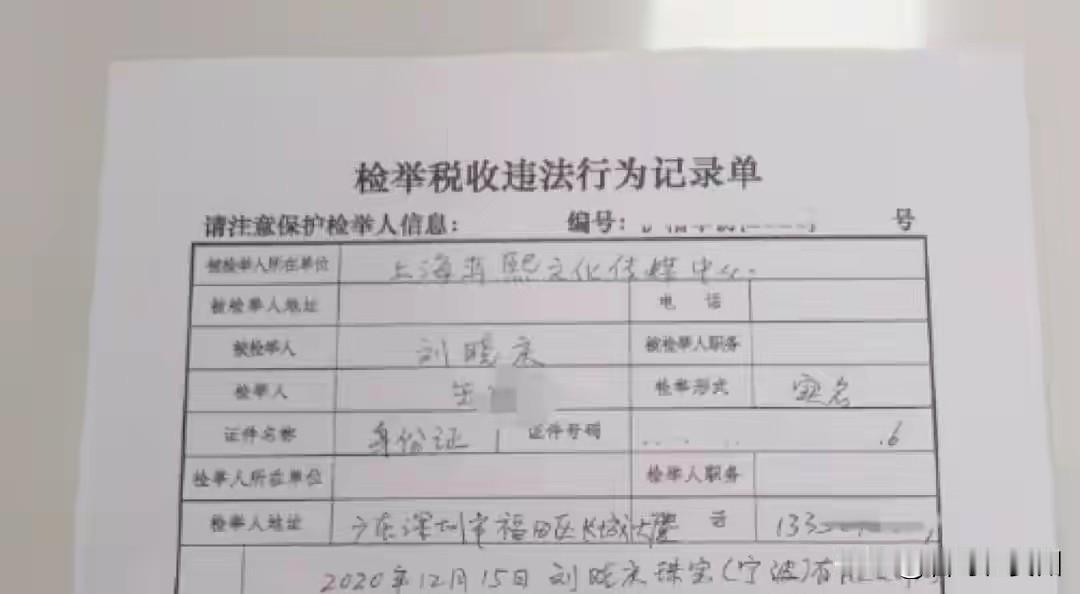 检举税收违法行为记录单
请注意保护检举人信息： 编号： 号
被检举人所在单位 上海 熙文化传媒中心.
被检举人地址 电 话
被检举人 刘晓庆 被检举人职务
检举人 检举形式 实名
证件名称 身份证 证件号码 6
检举人所在单位 检举人职务
检举人地址 广东深圳市福田区长城大厦 话 133
2020年12月15日 刘晓庆珠宝(宁波)有